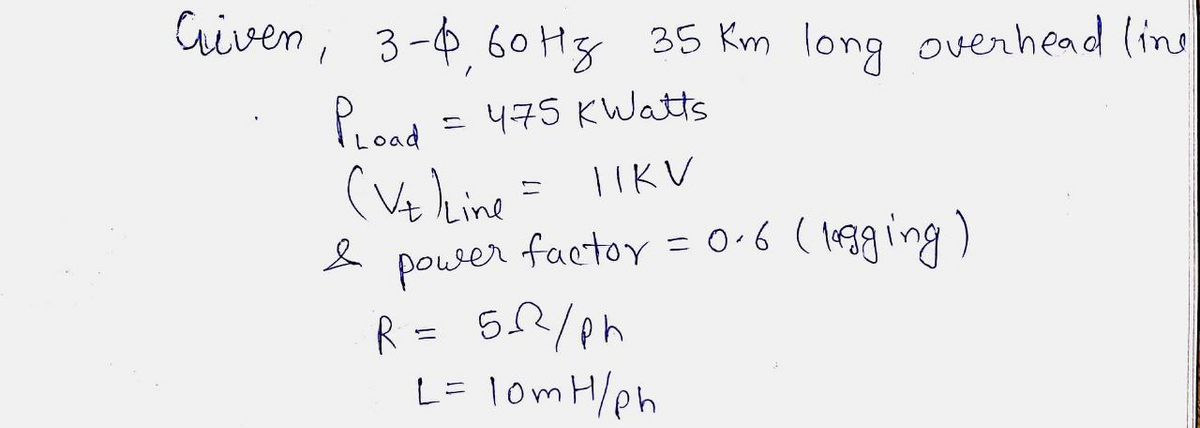 Given, 3-ϕ, 60 Hz 35 Km long overhead line
P_Load = 475 KWatts
(V_t)_Line = 11KV
& power factor = 0.6 (lagging)
R = 5Ω/ph
L = 10mH/ph